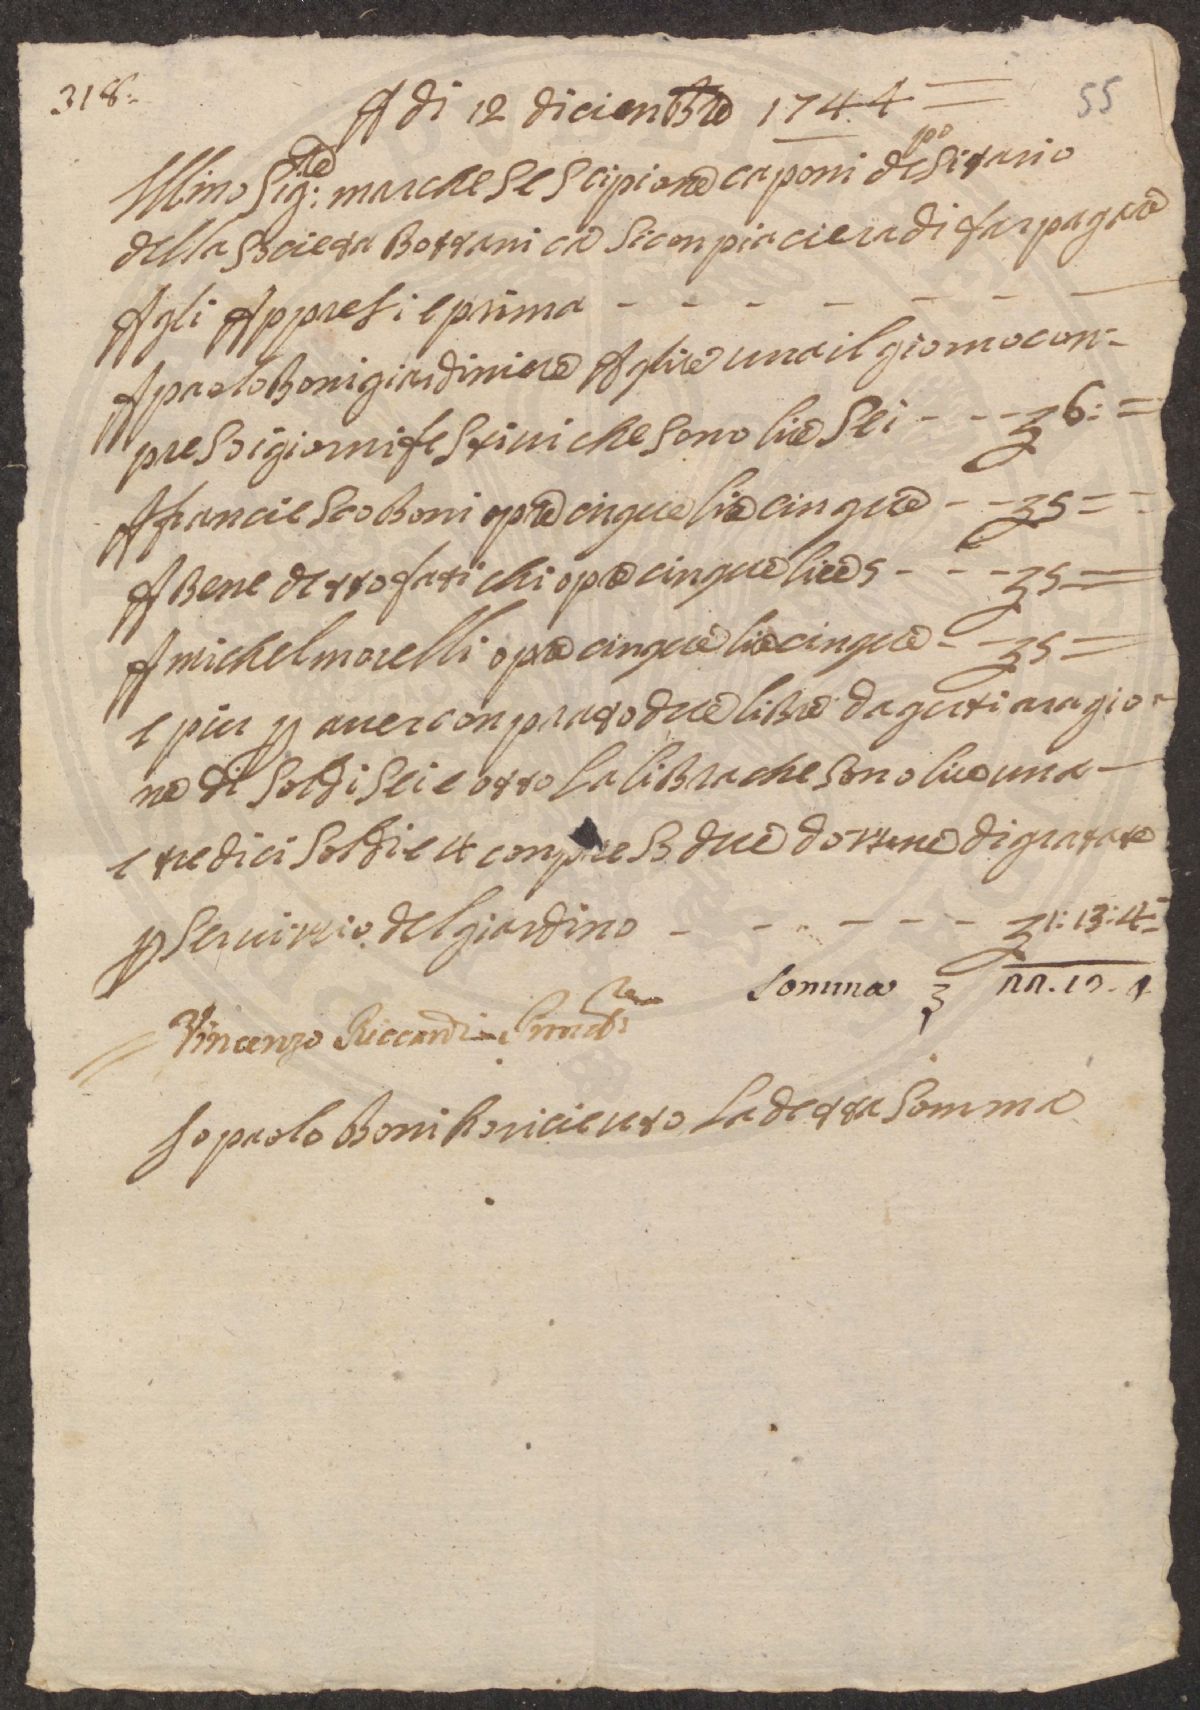 318: 55
A di 12 diciembre 1744
Illmo Sig:re marchese Scipione caponi depositario
della Societa Bottanica Si conpiaciera di far pagare
Agli Appresi e prima - - - - - -
A paolo Boni giardiniere A lire una il giorno con-
presi i giorni festiui che sono lire Sei - - - 6: =
A francie Sco Boni opre cinque lire cinque - - 5 = -
A Bene detto fatichi opre cinque lire 5 - - - 5 =
A michel morelli opre cinque lire cinque - - 5 =
e piu p auer conprato due libre daguti a ragio-
ne di Soldi Sei e otto la libra che sono lire una -
e tredici Soldi e 4 conpreso due dozzine di gratate
p Seruizzio del giardino - - - - - - 1: 13: 4 =
Somma 22. 13. 4
Vincenzo Riccardi
Io paolo Boni ho riceuto la detta Somma